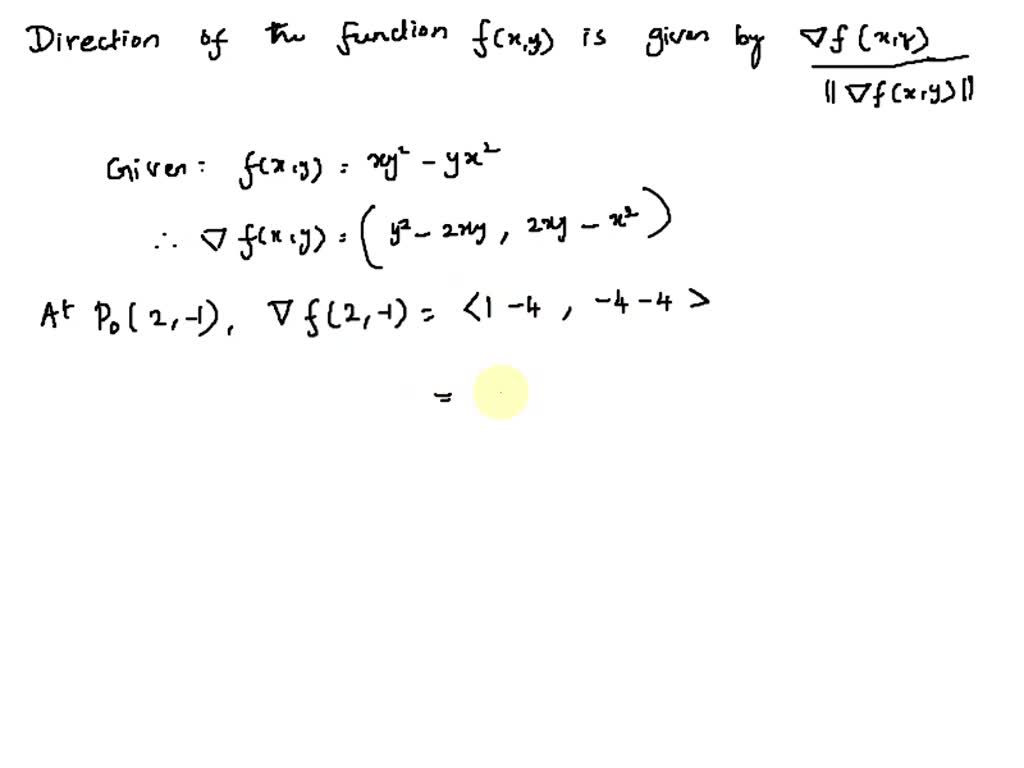 Direction of the function f(x,y) is given by ∇f(x,y)
||∇f(x,y)||
Given: f(x,y) = xy² - yx²
∴ ∇f(x,y) = (y² - 2xy, 2xy - x²)
At P₀(2,-1), ∇f(2,-1) = <1-4, -4-4>
=